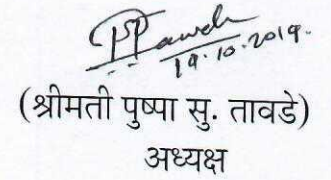 19.10.2019.
(श्रीमती पुष्पा सु. तावडे)
अध्यक्ष